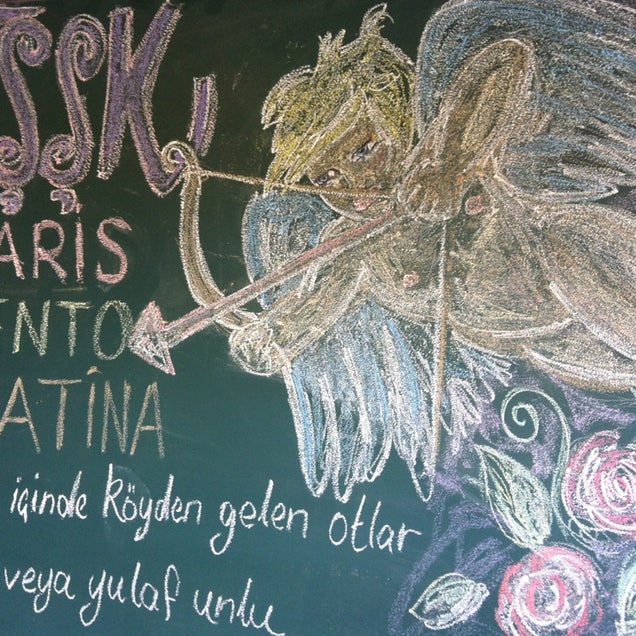 ŞŞK,
ARİS
ENTO
ATÎNA
içinde köyden gelen otlar
veya yulaf unlu